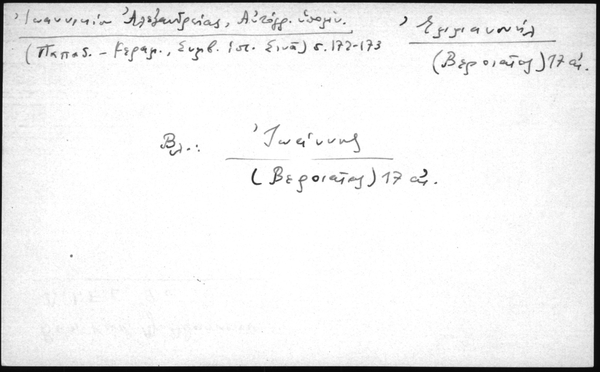 Ἰωαννικίου Ἀλεξανδρείας, Αὐτόγρ. ὑπολήν.
(Παπαδ. - Κεραμ., Συμβ. Ἱστ. Σινᾶ) σ. 172-173
Ἐμμανουήλ
(Βεροιαῖος) 17 αἰ.
Βλ.: Ἰωάννης
(Βεροιαῖος) 17 αἰ.